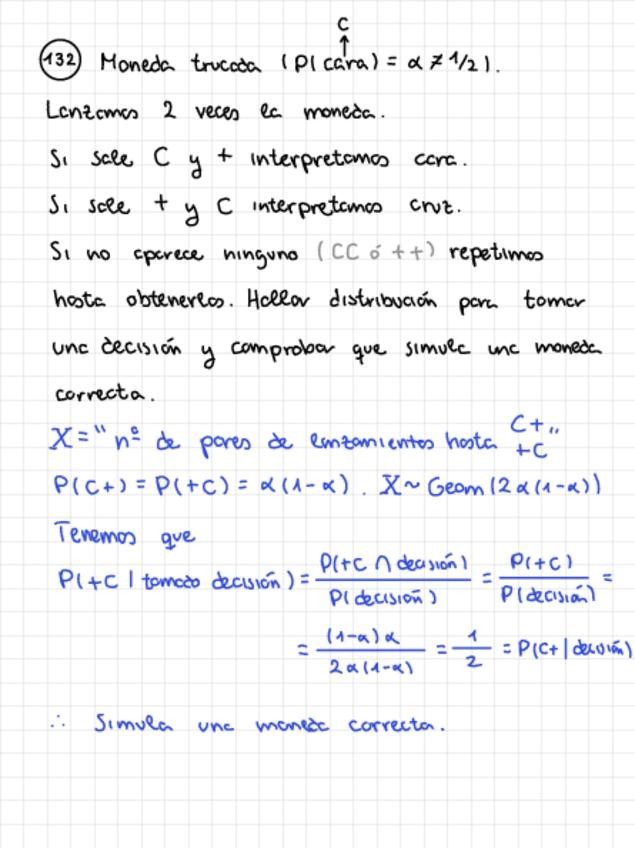 C
↑
132 Moneda trucada (P(cara) = α ≠ 1/2).
Lanzamos 2 veces la moneda.
Si sale C y + interpretamos cara.
Si sale + y C interpretamos cruz.
Si no aparece ninguno (CC ó ++) repetimos
hasta obtenerlos. Hallar distribución para tomar
una decisión y comprobar que simula una moneda
correcta.
X = "nº de pares de lanzamientos hasta C+ +C"
P(C+) = P(+C) = α(1-α). X ~ Geom(2α(1-α))
Tenemos que
P(+C | tomado decisión) = P(+C ∩ decisión) / P(decisión) = P(+C) / P(decisión) =
= (1-α)α / 2α(1-α) = 1/2 = P(C+ | decisión)
∴ Simula una moneda correcta.